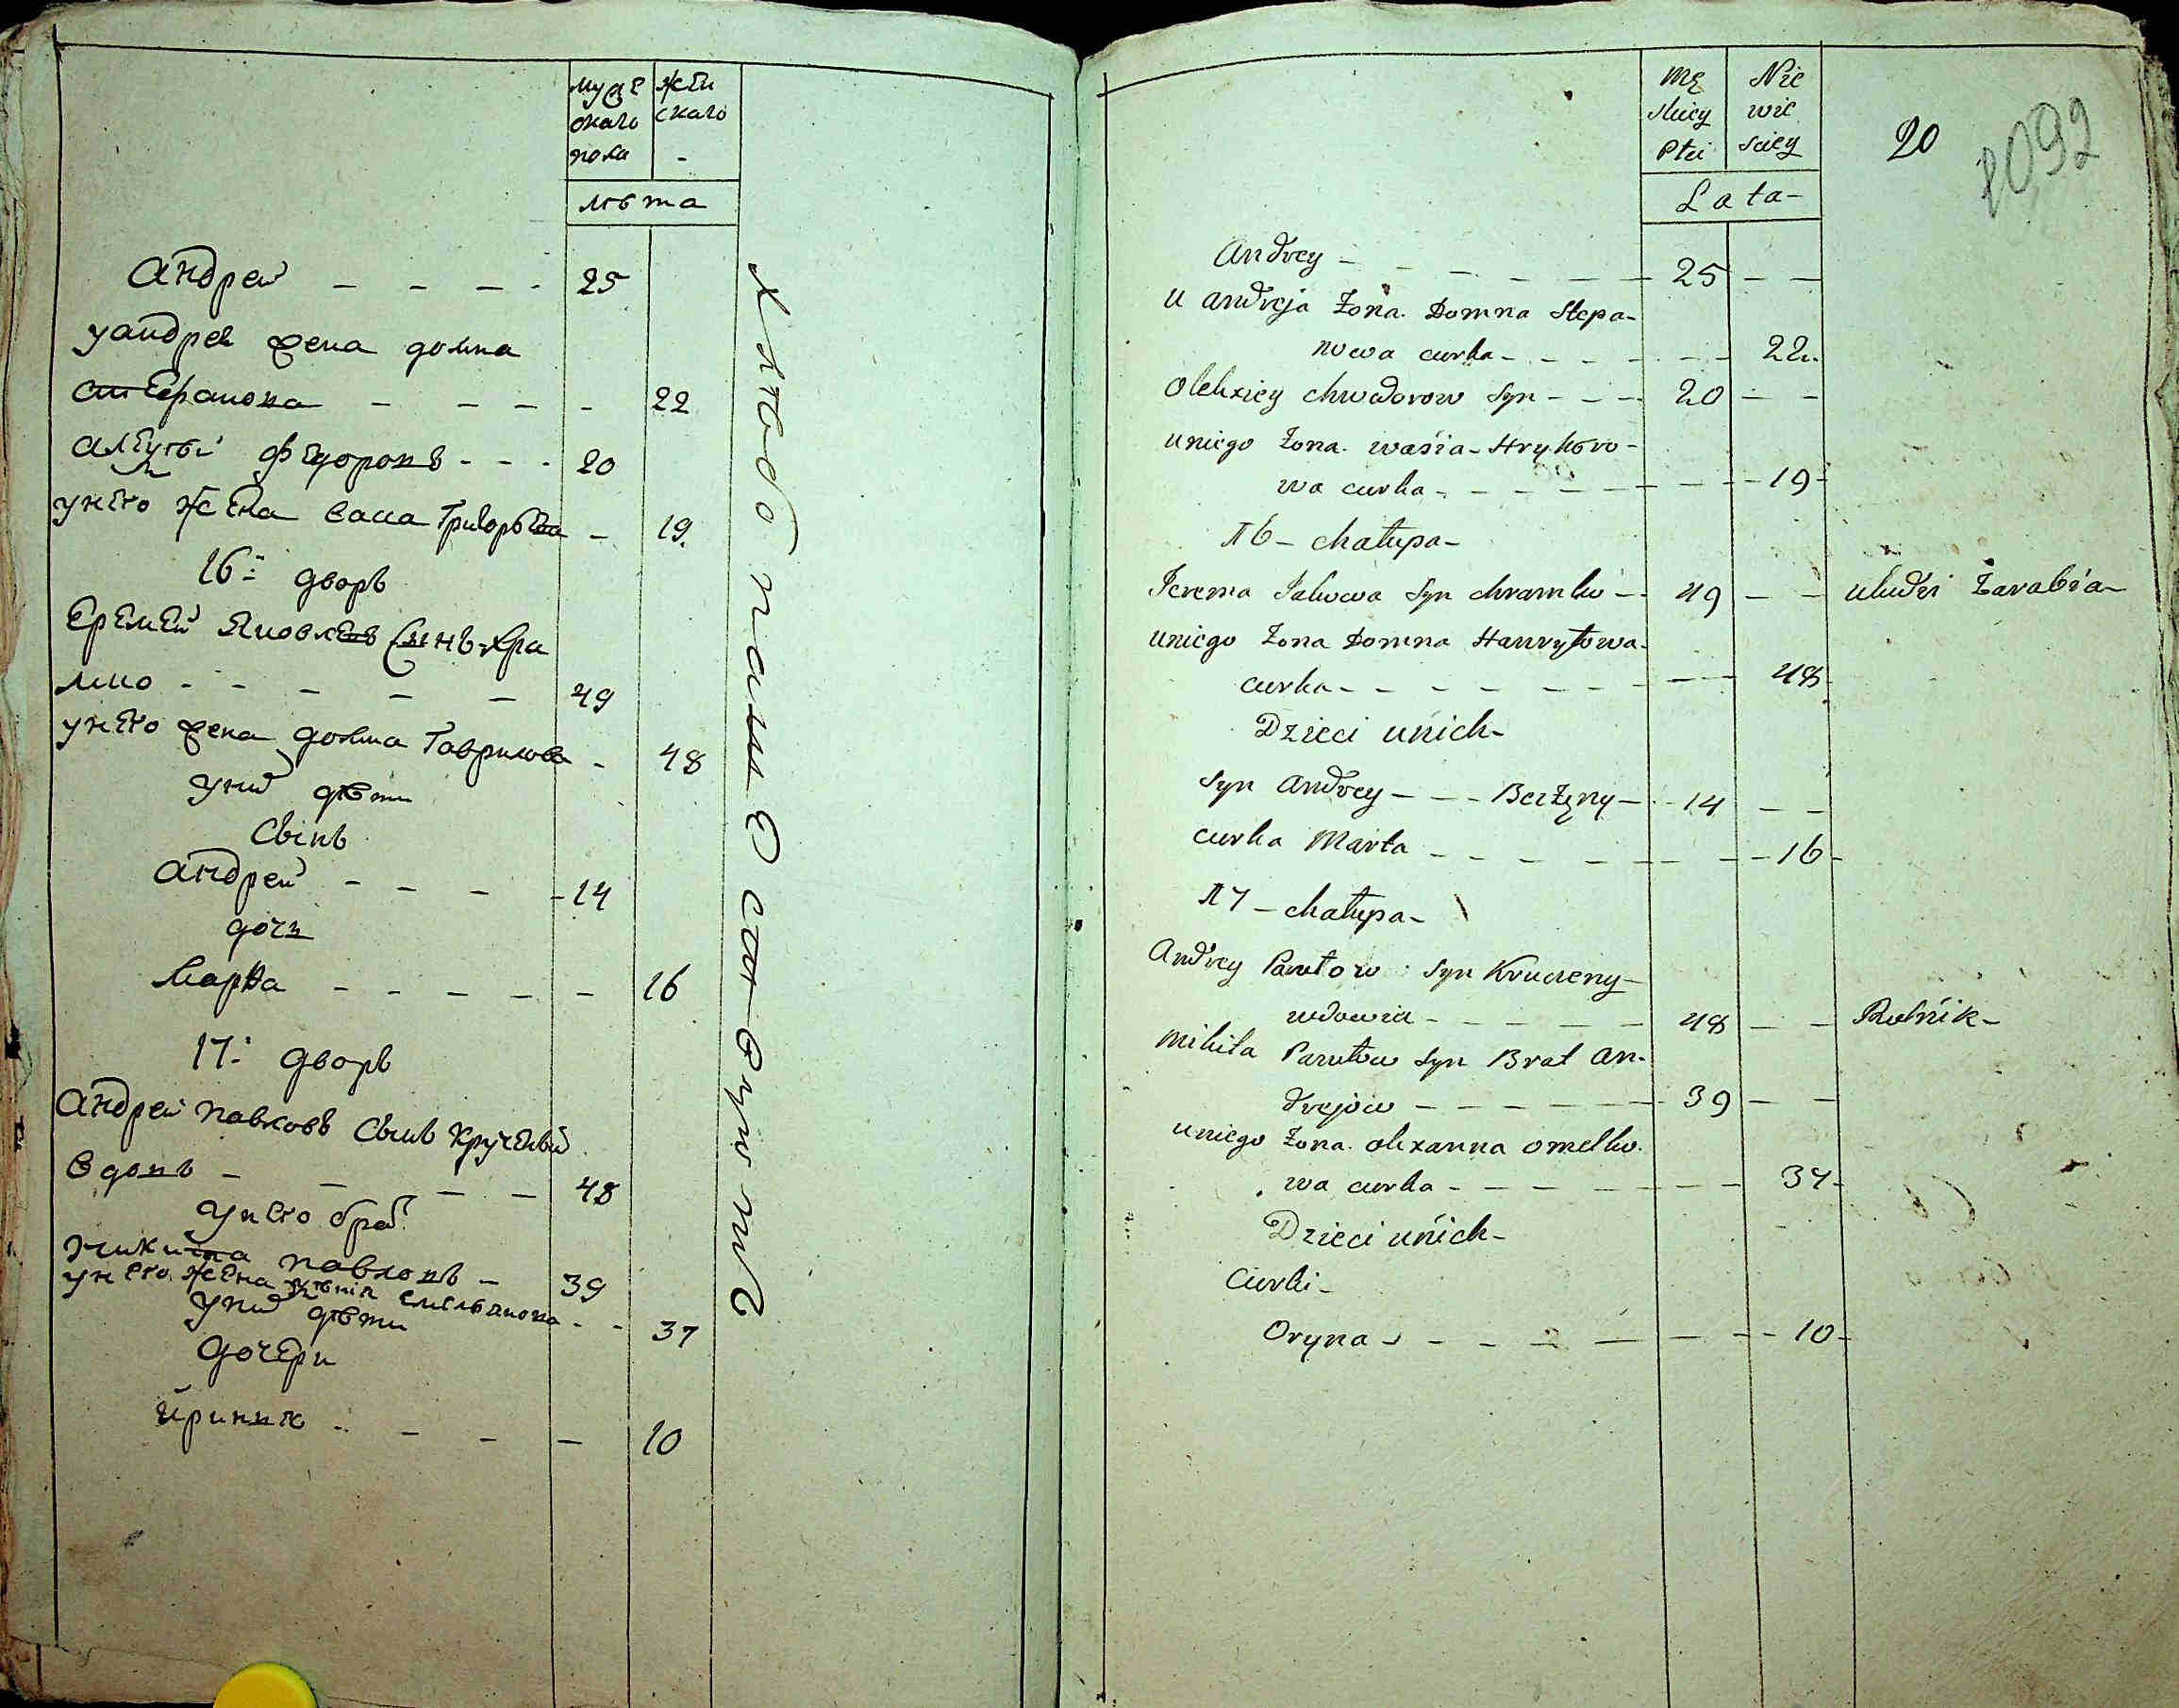 муже жен
скаго скаго
пола -
лѣта
Андрей - - - - 25
у андрея жена домна
степанова - - - - 22
алеѯѣй федоровъ - - - 20
у него жена васса Григорьева - 19.
16й дворъ
Еремей Яковлевъ сынъ хра
мко - - - - - 49
у него жена домна Гаврилова - 48
у них дѣти
Сынъ
Андрей - - - - 14
дочь
Марѳа - - - - - 16
17й дворъ
Андрей павловъ сынъ крученый
вдовъ - - - - 48
у него брат
никита павловъ - 39
у него жена емельянова - - 37
у них дѣти
дочери
ирина - - - - 10
хлѣбопашествуют
Mę Nie
skiey wie
Płci sciey
Lata -
20
1092
Andrey - - - - - - 25 - -
u andreja Żona. Domna Stepa-
nowa curka - - - - - - 22.
Olekxiey chwedorow Syn - - - 20 - -
uniego Żona. wasia - Hryhoro-
wa curka - - - - - - - - 19 -
16 - chałupa -
Jerema Jakowa Syn chramko - - 49 - - uludzi Zarabia -
uniego Żona Domna Hawryłowa.
curka - - - - - - - - - 48
Dzieci unich -
Syn Andrey - - - Beżęny - - 14 - -
curka Marta - - - - - - - 16 -
17 - chałupa -
Andrey Pawłow Syn Kruczeny -
wdowiec - - - - - 48 - - Rolnik -
Mikita Pawłow Syn Brat An-
drejow - - - - - - 39 - -
uniego Żona. olexanna omelko.
wa curka - - - - - - - 37 -
Dzieci unich -
Curki -
Oryna - - - - - - - - 10 -